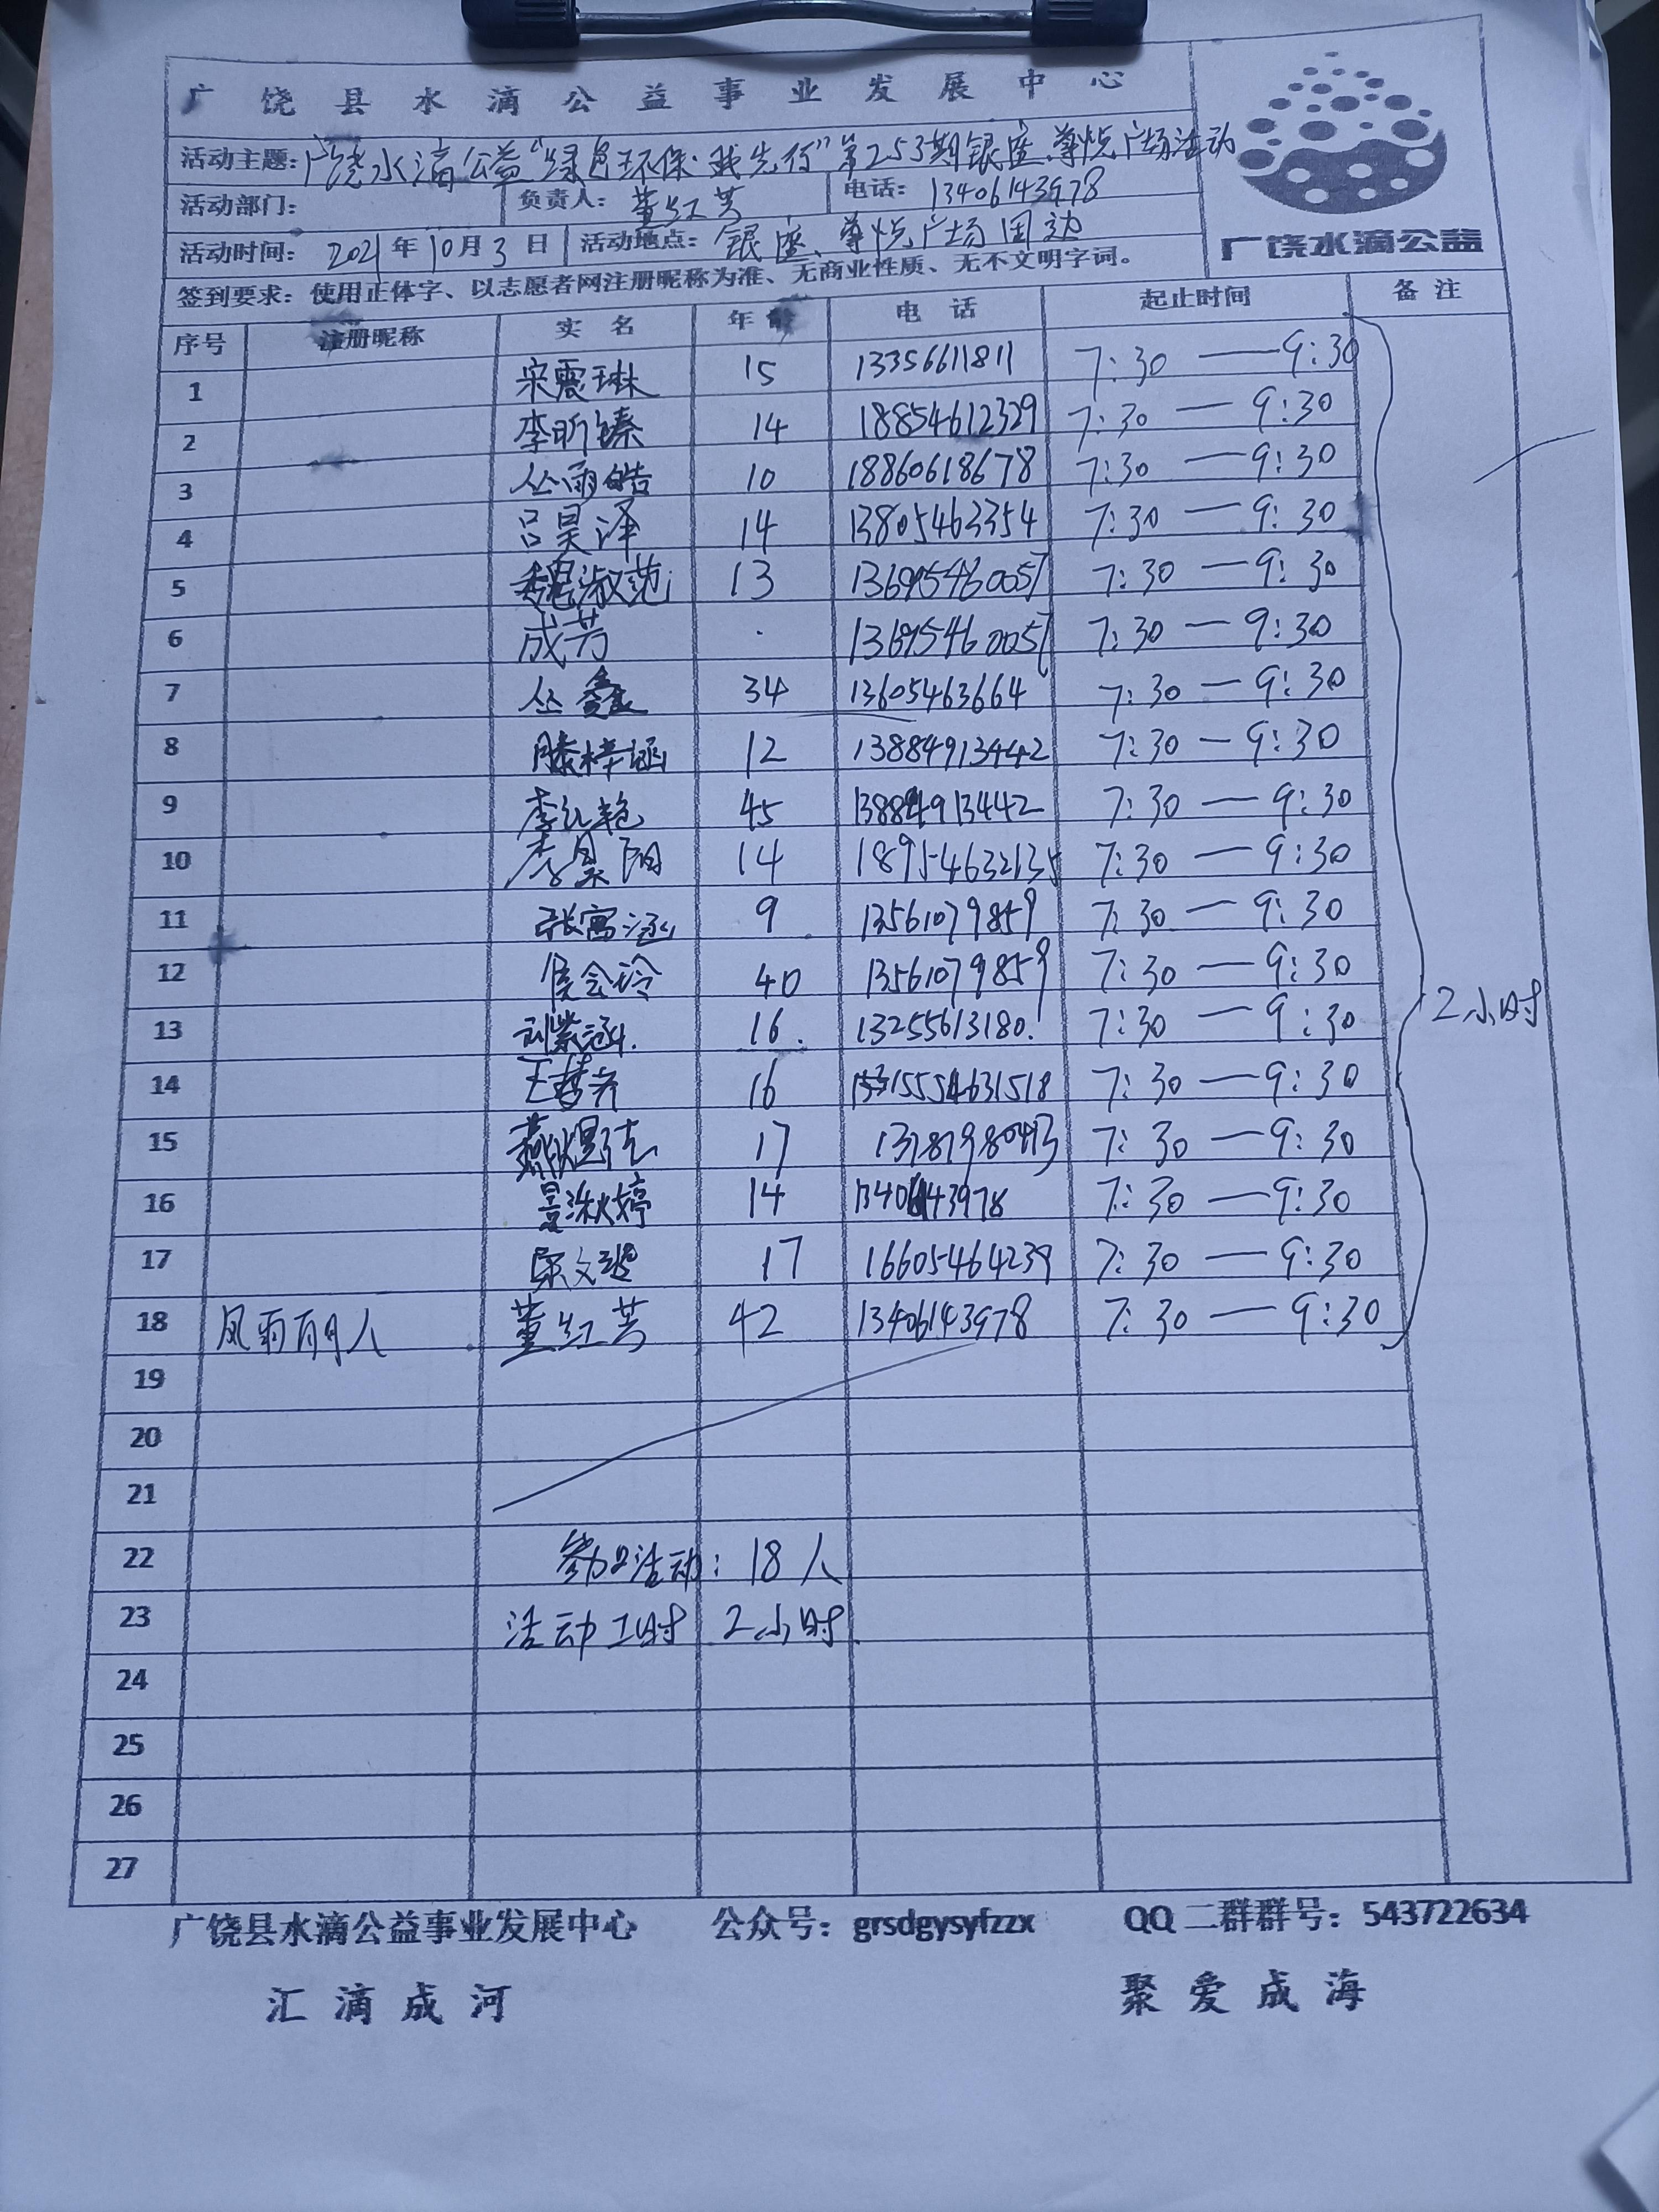 广饶县水滴公益事业发展中心
活动主题:广饶水滴公益“绿色环保·我先行”第253期银座、尊悦广场活动
活动部门: 负责人: 董红芳 电话: 13406143978
活动时间: 2021年10月3日 活动地点: 银座、尊悦广场周边
广饶水滴公益
签到要求: 使用正体字、以志愿者网注册昵称为准、无商业性质、无不文明字词。
序号 注册昵称 实名 年龄 电话 起止时间 备注
1 宋震琳 15 13356611811 7:30——9:30
2 李昕臻 14 18854612329 7:30—9:30
3 丛雨皓 10 18860618678 7:30—9:30
4 吕昊泽 14 13805463354 7:30—9:30
5 魏淑范 13 7:30—9:30
6 成芳 7:30—9:30
7 丛鑫 34 13605463664 7:30—9:30
8 滕梓涵 12 13884913442 7:30—9:30
9 李红艳 45 13884913442 7:30—9:30
10 李昊阳 14 18954632135 7:30—9:30
11 张寓涵 9 13561079859 7:30—9:30
12 侯会玲 40 13561079859 7:30—9:30
13 刘紫涵. 16. 13255613180. 7:30—9:30
2小时
14 王梦卉 16 15554631518 7:30—9:30
15 17 7:30—9:30
16 景湫婷 14 13406143978 7:30—9:30
17 17 16605464239 7:30—9:30
18 风雨有月人 董红芳 42 13406143978 7:30—9:30
19
20
21
22 参加活动: 18人
23 活动工时 2小时
24
25
26
27
广饶县水滴公益事业发展中心 公众号: grsdgysyfzzx QQ二群群号: 543722634
汇滴成河 聚爱成海